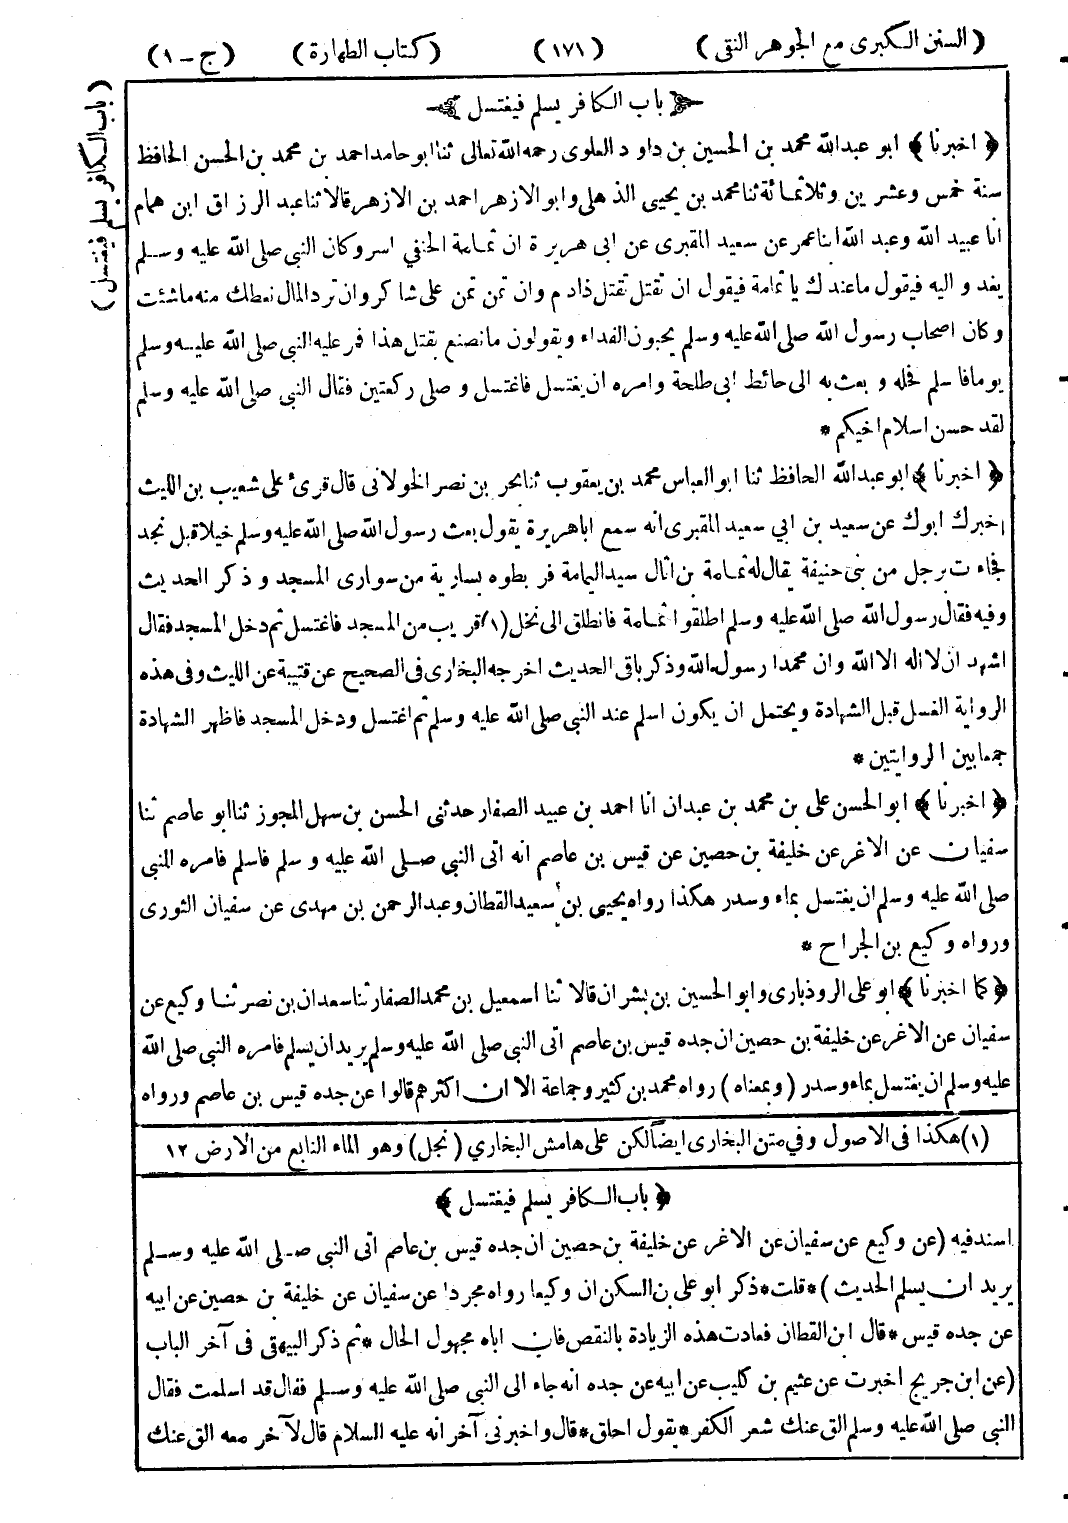 (السنن الكبرى مع الجوهر النقى) (١٧١) (كتاب الطهارة) (ج - ١)
(باب الكافر يسلم فيغتسل)
باب الكافر يسلم فيغتسل
﴿ اخبرنا ﴾ ابو عبدالله محمد بن الحسين بن داود العلوى رحمه الله تعالى ثنا ابو حامد احمد بن محمد بن الحسن الحافظ
سنة خمس وعشرين وثلاثمائة ثنا محمد بن يحيى الذهلى وابو الازهر احمد بن الازهر قالا ثنا عبد الرزاق ابن همام
انا عبيد الله وعبد الله ابنا عمر عن سعيد المقبرى عن ابى هريرة ان ثمامة الحنفي اسر وكان النبى صلى الله عليه وسلم
يغدو اليه فيقول ما عندك يا ثمامة فيقول ان تقتل تقتل ذادم وان تمن تمن على شاكر وان ترد المال نعطك منه ماشئت
وكان اصحاب رسول الله صلى الله عليه وسلم يحبون الفداء ويقولون ما نصنع بقتل هذا فمر عليه النبى صلى الله عليه وسلم
يوما فاسلم فحله وبعث به الى حائط ابى طلحة وامره ان يغتسل فاغتسل وصلى ركعتين فقال النبى صلى الله عليه وسلم
لقد حسن اسلام اخيكم *
﴿ اخبرنا ﴾ ابو عبدالله الحافظ ثنا ابو العباس محمد بن يعقوب ثنا بحر بن نصر الخولانى قال قرئ على شعيب بن الليث
اخبرك ابوك عن سعيد بن ابي سعيد المقبرى انه سمع اباهريرة يقول بعث رسول الله صلى الله عليه وسلم خيلا قبل نجد
فجاءت برجل من بنى حنيفة يقال له ثمامة بن اثال سيد اليمامة فربطوه بسارية من سوارى المسجد وذكر الحديث
وفيه فقال رسول الله صلى الله عليه وسلم اطلقوا ثمامة فانطلق الى نخل (١) قريب من المسجد فاغتسل ثم دخل المسجد فقال
اشهد ان لا اله الا الله وان محمدا رسول الله وذكر باقى الحديث اخرجه البخارى فى الصحيح عن قتيبة عن الليث وفى هذه
الرواية الغسل قبل الشهادة ويحتمل ان يكون اسلم عند النبى صلى الله عليه وسلم ثم اغتسل ودخل المسجد فاظهر الشهادة
جمعا بين الروايتين *
﴿ اخبرنا ﴾ ابو الحسن على بن محمد بن عبدان انا احمد بن عبيد الصفار حدثنى الحسن بن سهل المجوز ثنا ابو عاصم ثنا
سفيان عن الاغر عن خليفة بن حصين عن قيس بن عاصم انه اتى النبى صلى الله عليه وسلم فاسلم فامره النبى
صلى الله عليه وسلم ان يغتسل بماء وسدر هكذا رواه يحيى بن سعيد القطان وعبد الرحمن بن مهدى عن سفيان الثورى
ورواه وكيع بن الجراح *
﴿ كما اخبرنا ﴾ ابو على الروذبارى وابو الحسين بن بشران قالا ثنا اسمعيل بن محمد الصفار ثنا سعدان بن نصر ثنا وكيع عن
سفيان عن الاغر عن خليفة بن حصين ان جده قيس بن عاصم اتى النبى صلى الله عليه وسلم يريد ان يسلم فامره النبى صلى الله
عليه وسلم ان يغتسل بماء وسدر (وبمعناه) رواه محمد بن كثير وجماعة الا ان اكثرهم قالوا عن جده قيس بن عاصم ورواه
(١) هكذا فى الاصول وفي متن البخارى ايضاً لكن على هامش البخاري (نجل) وهو الماء النابع من الارض ١٢
﴿ باب الكافر يسلم فيغتسل ﴾
اسند فيه (عن وكيع عن سفيان عن الاغر عن خليفة بن حصين ان جده قيس بن عاصم اتى النبى صلى الله عليه وسلم
يريد ان يسلم الحديث) * قلت * ذكر ابو على بن السكن ان وكيعا رواه مجردا عن سفيان عن خليفة بن حصين عن ابيه
عن جده قيس * قال ابن القطان فعادت هذه الزيادة بالنقص فان اباه مجهول الحال * ثم ذكر البيهقى فى آخر الباب
(عن ابن جريج اخبرت عن عثيم بن كليب عن ابيه عن جده انه جاء الى النبى صلى الله عليه وسلم فقال قد اسلمت فقال
النبى صلى الله عليه وسلم الق عنك شعر الكفر * يقول احلق * قال واخبرنى آخر انه عليه السلام قال لآخر معه الق عنك